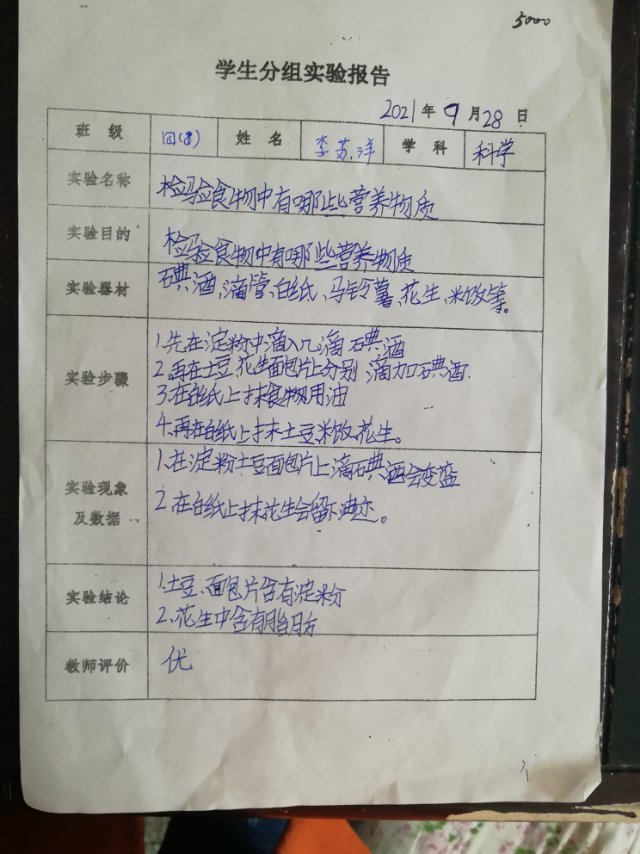 5000
学生分组实验报告
2021年9月28日
班级 四(8) 姓名 李苏洋 学科 科学
实验名称 检验食物中有哪些营养物质
实验目的 检验食物中有哪些营养物质
实验器材 碘酒、滴管、白纸、马铃薯、花生、米饭等。
实验步骤
1.先在淀粉中滴入几滴碘酒
2.再在土豆花生面包片上分别滴加碘酒.
3.在白纸上抹食物用油
4.再在白纸上抹土豆米饭花生。
实验现象及数据
1.在淀粉土豆面包片上滴碘酒会变蓝
2.在白纸上抹花生会留下油迹。
实验结论
1.土豆、面包片含有淀粉
2、花生中含有脂肪
教师评价 优